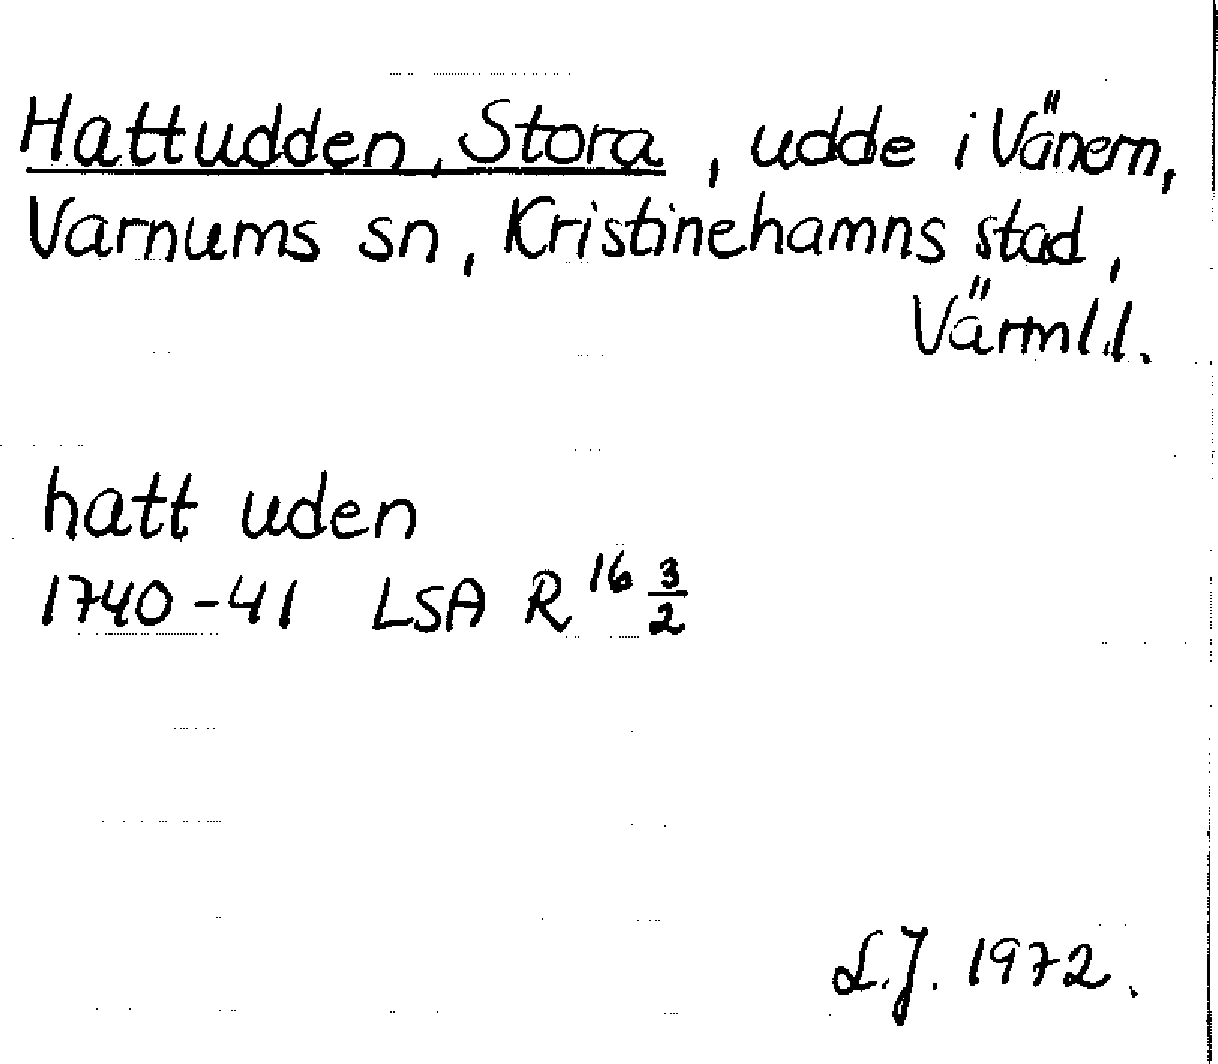 Hattudden, Stora, udde i Vänern,
Varnums sn, Kristinehamns stad,
Värml.l.
hatt uden
1740-41 LSA R 16 3/2
L.J. 1972.